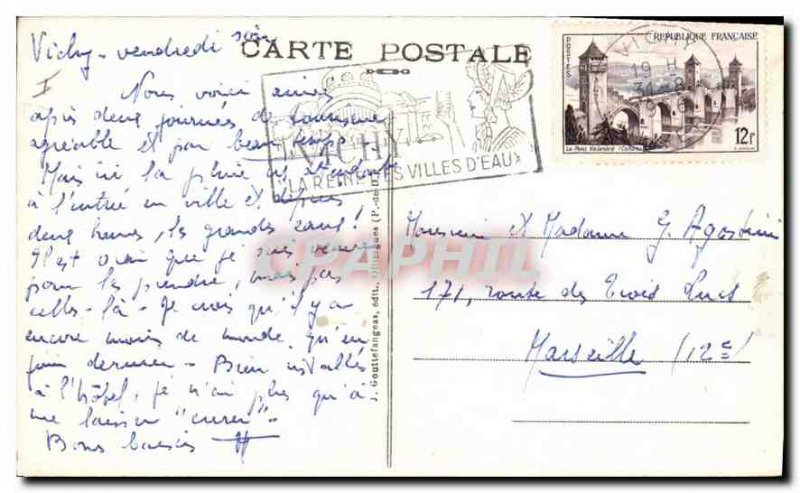 Vichy - vendredi soir
CARTE POSTALE
I
Nous voici arrivés
après deux journées de tourisme
agréable et par beau temps -
Mais ici la pluie
à l'entrée en ville et depuis
deux heures, les grandes eaux !
Il est vrai que je suis venu
pour les prendre, mais pas
celles-là - Je crois qu'il y a
encore moins de monde qu'en
juin dernier - Bien installés
à l'hôtel, je n'ai plus qu'à
me laisser "curer" -
Bons baisers
VICHY
LA REINE DES VILLES D'EAUX
POSTES
REPUBLIQUE FRANÇAISE
Le Pont Valentré (Cahors)
12F
VICHY
19 H
31-8
PAPHIL
J. Gouttefangeas, édit., Olliergues (P.-de-D.)
Monsieur et Madame G. Agostini
171, route des Trois Lucs
Marseille (12e)